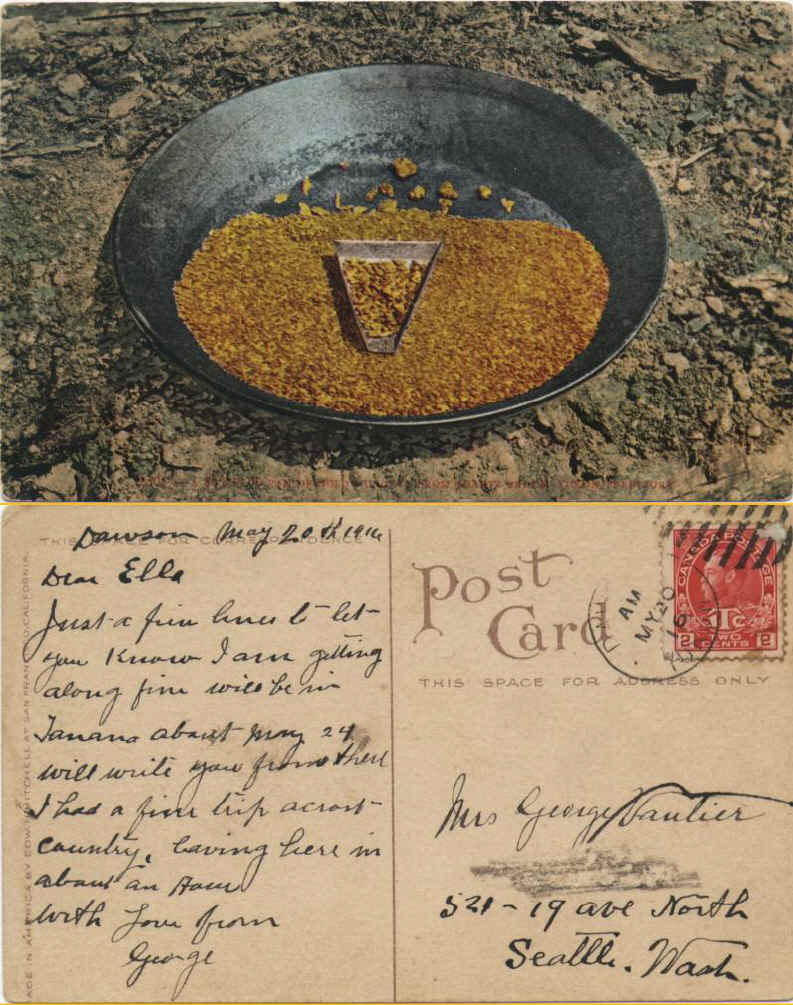 THIS SPACE FOR CORRESPONDENCE
Dawson May 20th 1916
Dear Ella
Just a few lines to let
you Know I am getting
along fine will be in
Tanana about May 24
will write you from there
I had a fine trip across
country, leaving here in
about an Hour
With Love from
George
Post
Card
THIS SPACE FOR ADDRESS ONLY
AM
MY 20
16
CANADA POSTAGE
1Tc
2 TWO CENTS 2
Mrs George Vautier
521 - 19 ave North
Seattle. Wash.
MADE IN AMERICA BY EDW. H. MITCHELL AT SAN FRANCISCO, CALIFORNIA.